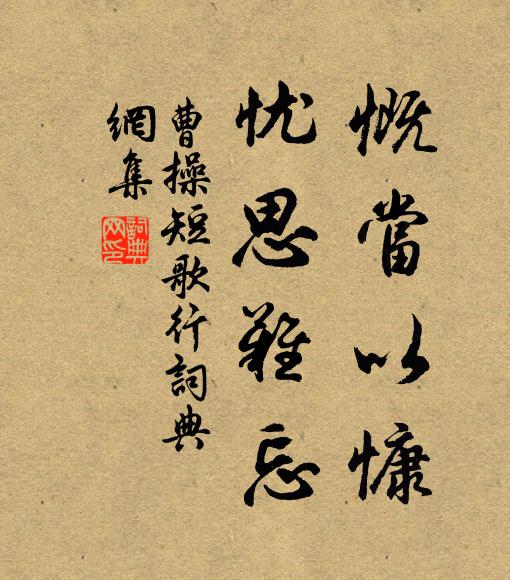 慨當以慷
忧思難忘
曹操短歌行詞典
網集
詞典
网印